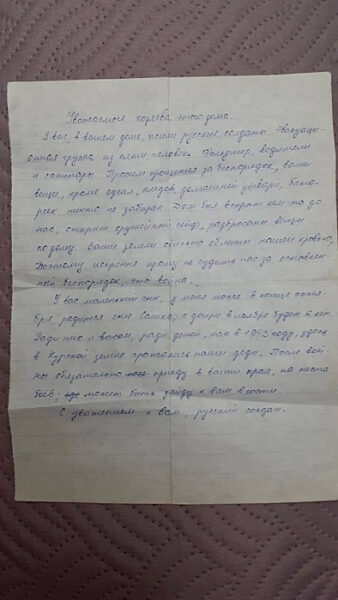 Уважаемые хозяева этого дома.
У вас, в вашем доме, жили русские солдаты. Эвакуаци-
онная группа из пяти человек. Фельдшер, водители
и санитары. Просим прощения за беспорядок, ваши
вещи, кроме одеял, пледов, домашней утвари, бата-
реек никто не забирал. Дом был вскрыт кем-то до
нас, открыт оружейный сейф, разбросаны вещи
по дому. Ваши земли обильно облиты нашей кровью,
Поэтому искренне прошу не судить нас за оставлен-
ный беспорядок, это война.
У вас маленький сын, у меня тоже в конце октя-
бря, родится сын Сашка, а дочери в ноябре будет 6 лет.
Ради них и воюем, ради детей, как в 1943 году, здесь
в Курской земле сражались наши деды. После вой-
ны обязательно приеду в ваши края, на места
боёв, может быть зайду к вам в гости.
С уважением к вам, русский солдат.